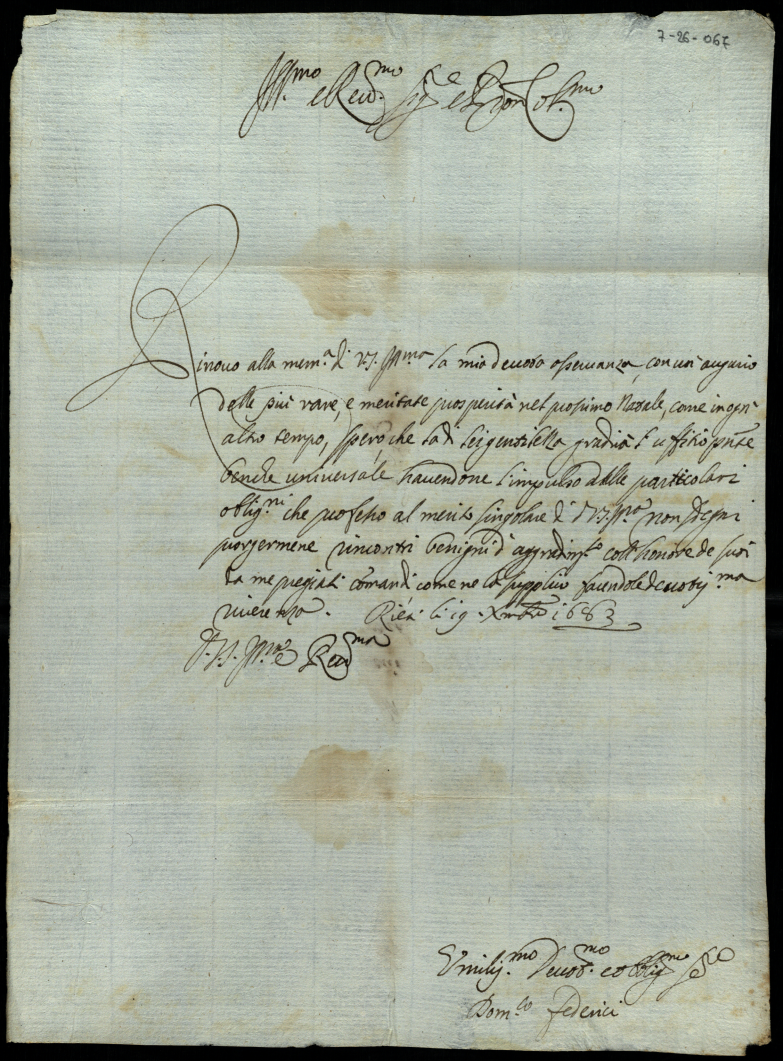 7-26-067
Ill.mo e Reud.mo Sig.re e Pron Col.mo
Rinouo alla mem.a di V.S. Ill.ma la mia deuota osseruanza, con un' augurio
delle più rare, e meritate prosperità nel prossimo Natale, come in ogni
altro tempo, spero che la di lei gentilezza gradirà l'uffitio pnte
benche universale hauendone l'impulso dalle particolari
oblig.ni che professo al merito singolare di V.S. Ill.ma non sdegni
porgermene rincontri benigni d'aggradim.to coll'honore de suoi
da me pregiati comandi come ne la supplico facendole deuotiss.ma
riuerenza. Rieti li 19 Xmbre 1683
D. V.S. Ill.ma e Reud.ma
Vmiliss.mo Deuot.mo et oblig.mo Ser.e
Dom.co Federici